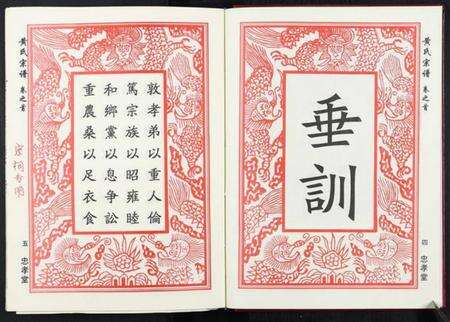 黄氏宗谱 卷之首
垂訓
四 忠孝堂
敦孝弟以重人倫
篤宗族以昭雍睦
和鄉黨以息爭訟
重農桑以足衣食
黄氏宗谱 卷之首
五 忠孝堂